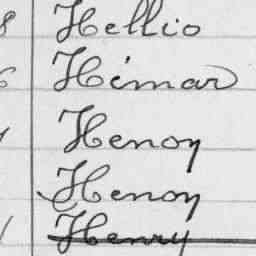 Hellio
Hémar
Henoy
Henoy
Henry